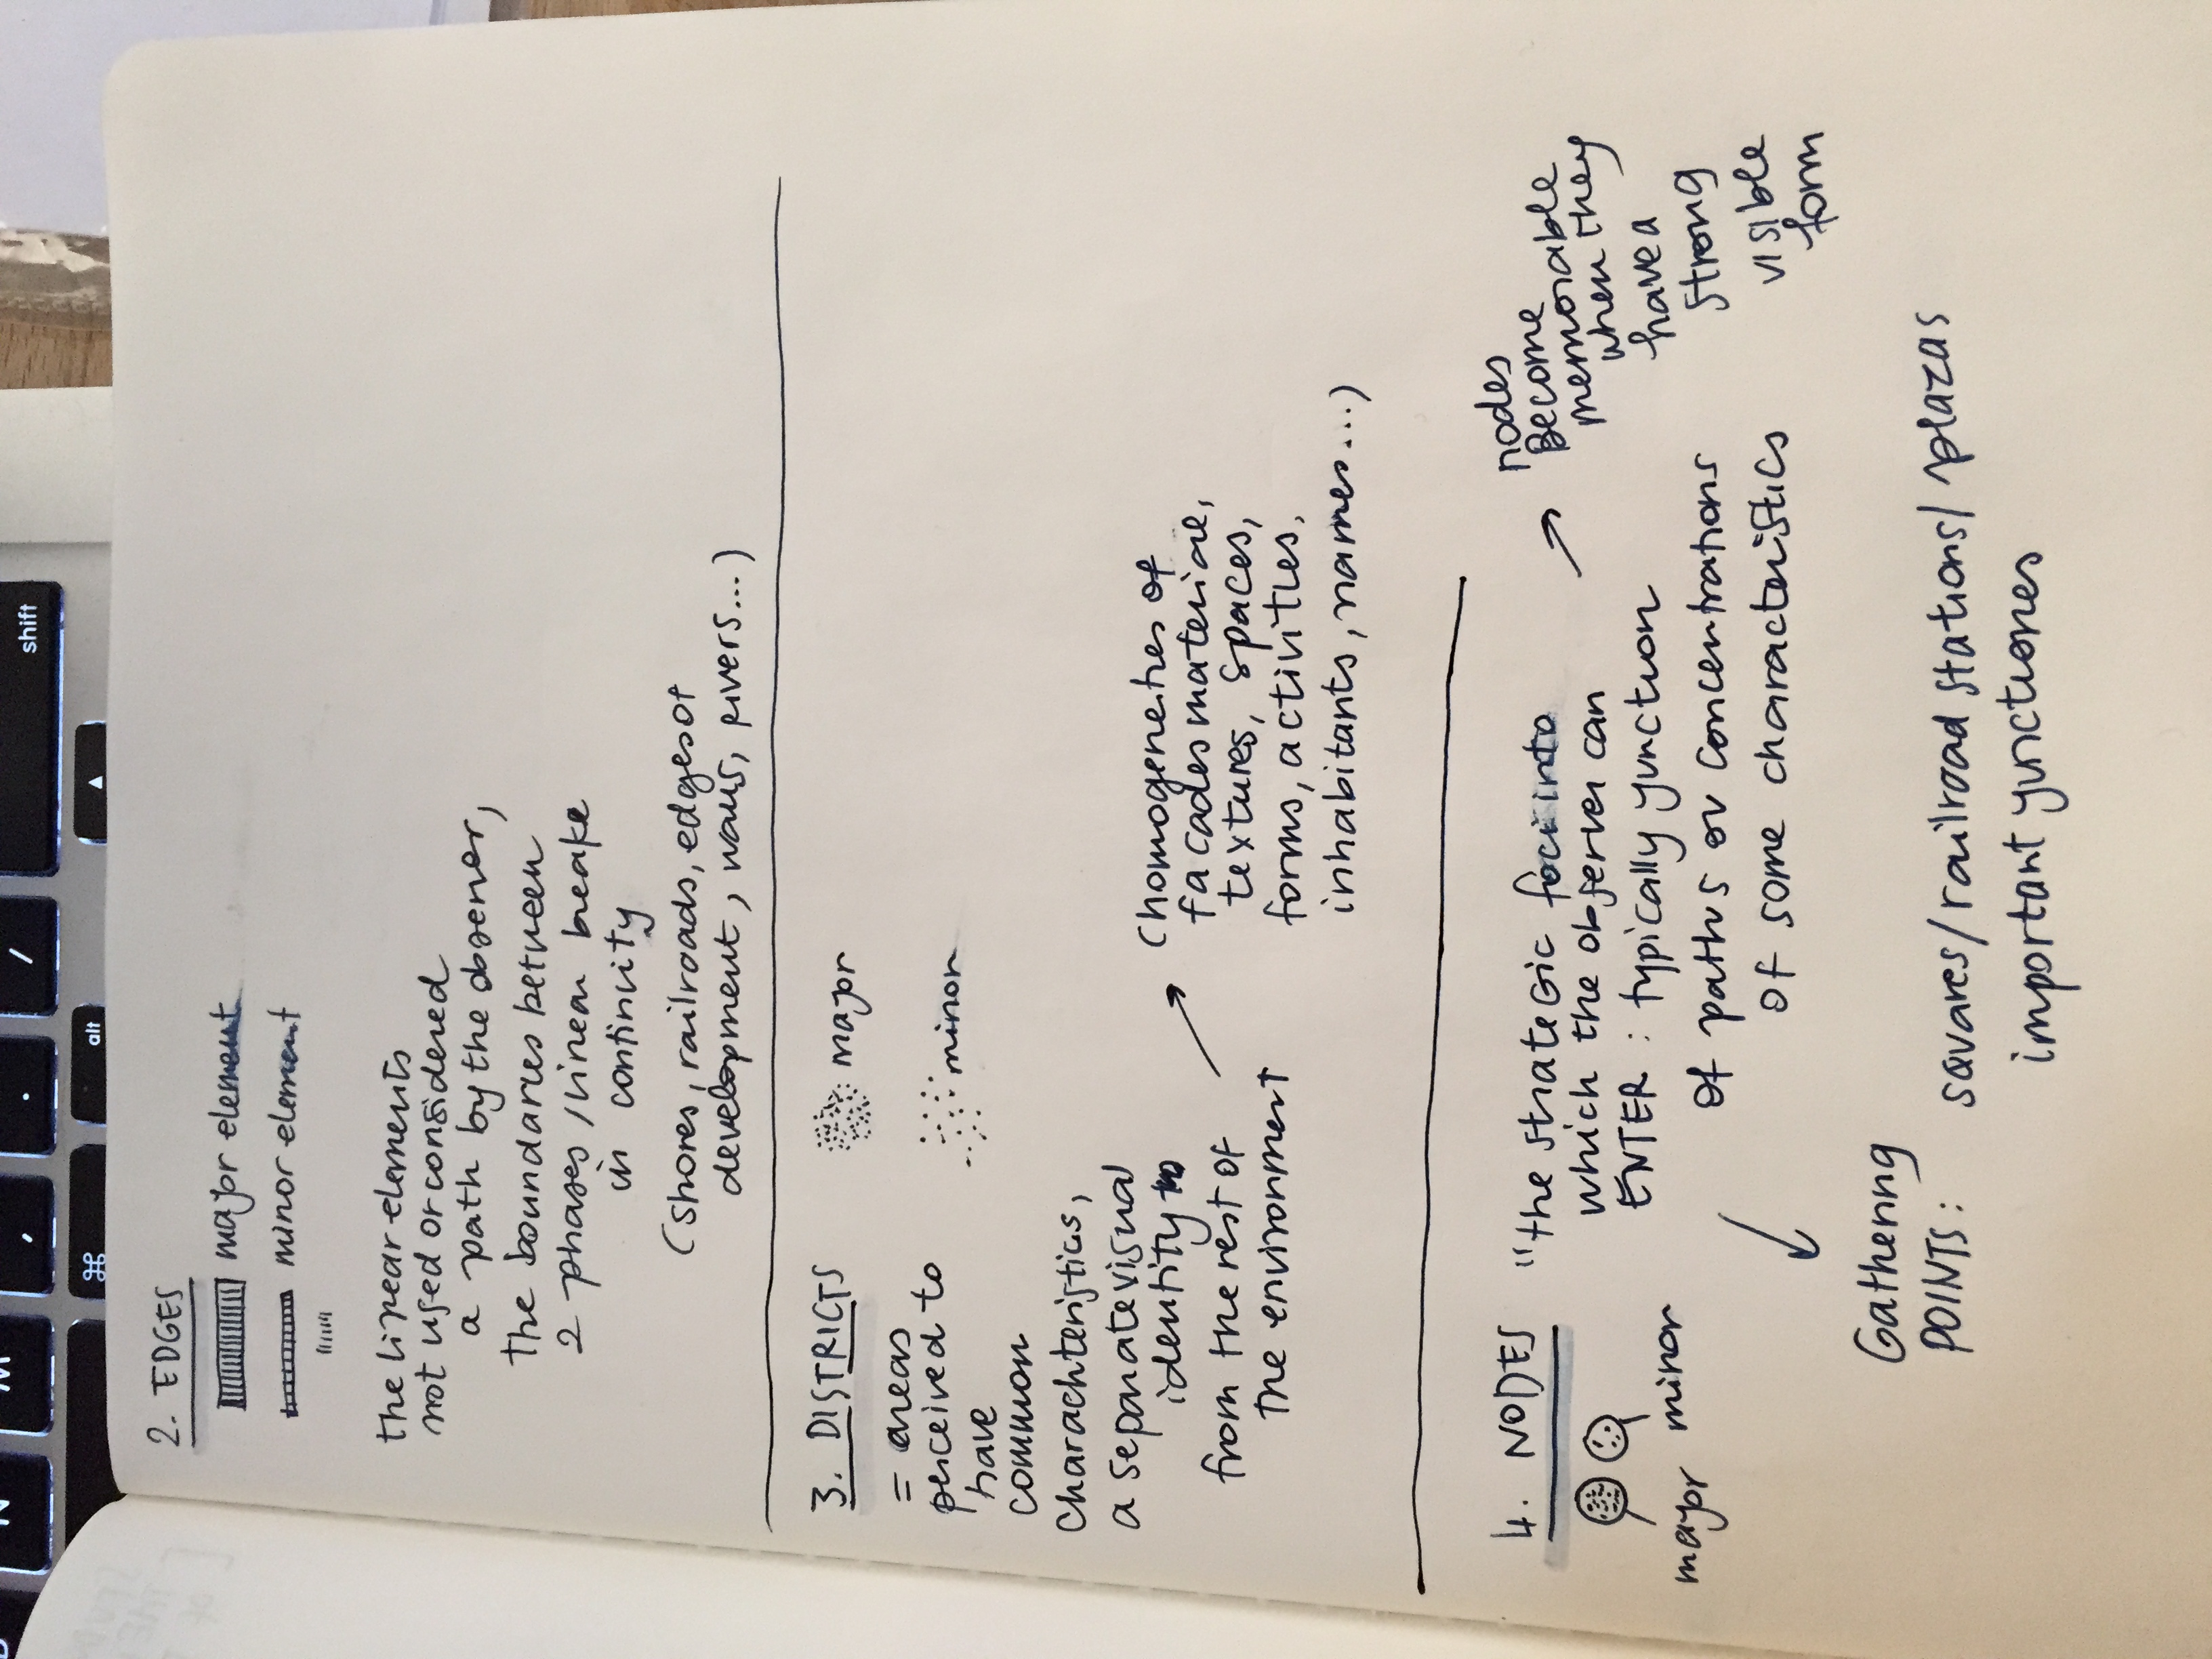 2. EDGES
major element
minor element
the linear elements
not used or considered
a path by the observer,
the boundaries between
2 phases / linear breake
in continuity
(shores, railroads, edges of
development, walls, rivers...)
3. DISTRICTS
major
minor
= areas
perceived to
have
common
charachteristics,
a separate visual
identity to
from the rest of
the environment
(homogeneities of
facades materiale,
textures, spaces,
forms, activities,
inhabitants, names...)
4. NODES
major minor
"the strateGic foci into
which the observer can
ENTER : typically junction
of paths or concentrations
of some characteristics
nodes
Become
memorable
when they
have a
strong
visible
form
Gathering
POINTS:
sqvares / railroad stations / plazas
important junctiones
shift
alt
⌘
/
.
,
M
N